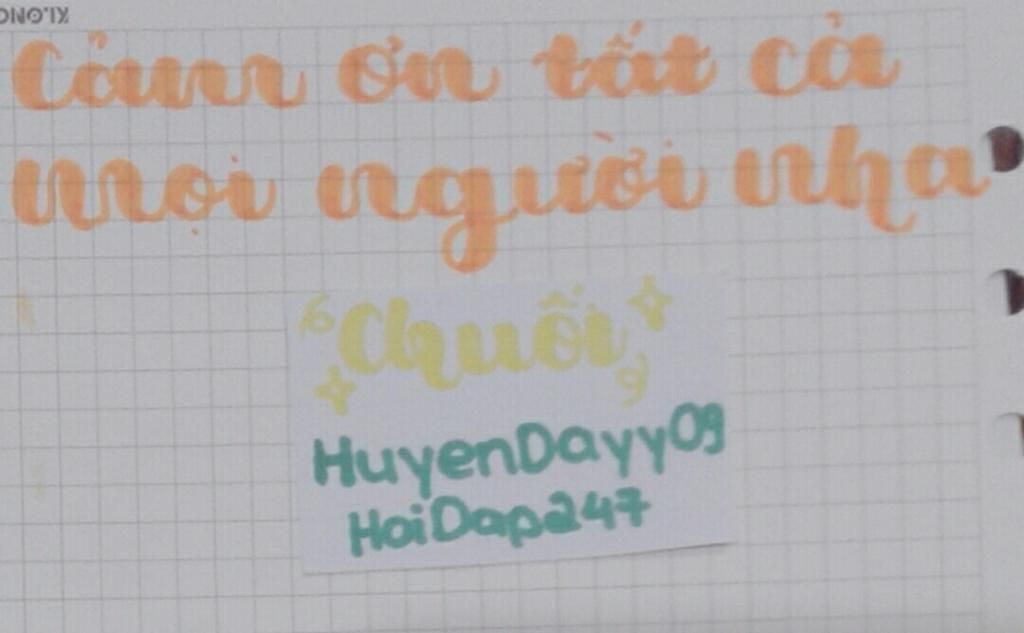 KLONG
Cảm ơn tất cả
mọi người nha
Chuối
HuyenDayy09
HoiDap247